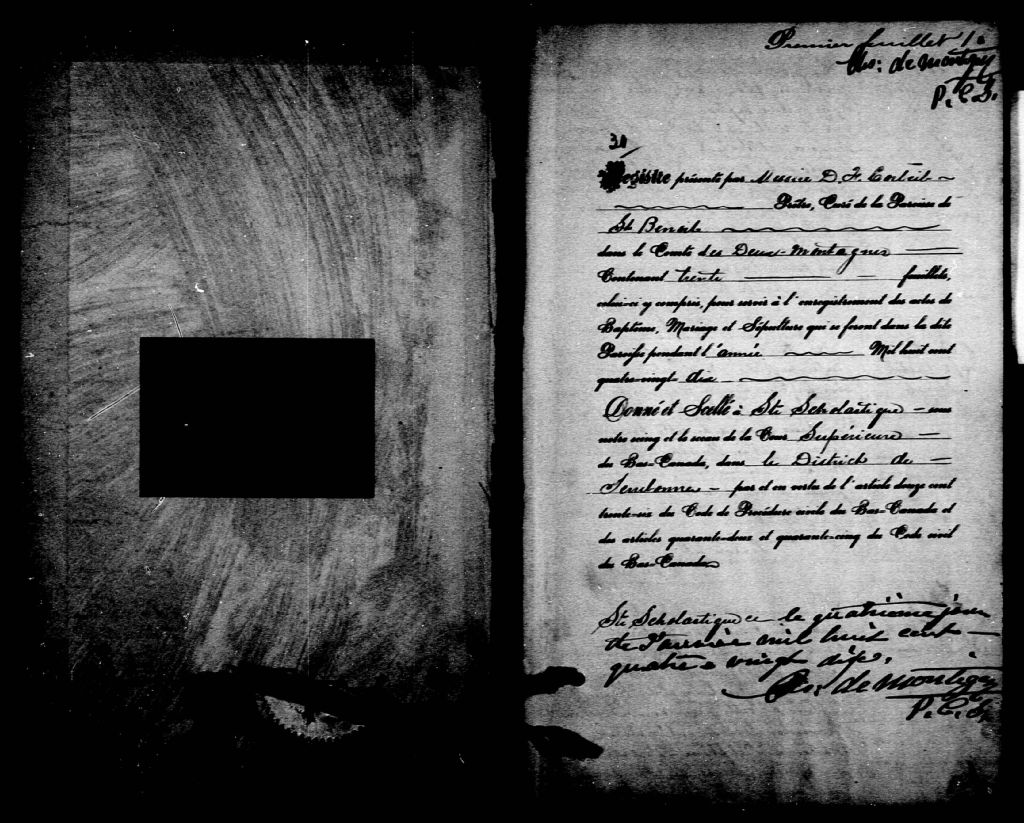 Premier feuillet 1.
de Montigny
P.C.S.
30
Registre présenté par Messire D. F.
Prêtre, Curé de la Paroisse de
St Benoit
dans le Comté des Deux-Montagnes
Contenant trente feuillets,
celui-ci y compris, pour servir à l'enregistrement des actes de
Baptême, Mariage et Sépulture qui se feront dans la dite
Paroisse pendant l'année Mil huit cent
quatre-vingt dix
Donné et Scellé à Ste Scholastique - sous
notre seing et le sceau de la Cour Supérieure
du Bas-Canada, dans le District de
Terrebonne - par et en vertu de l'article douze cent
trente-six du Code de Procédure civile du Bas-Canada et
des articles quarante-deux et quarante-cinq du Code civil
du Bas-Canada
Ste Scholastique ce le quatrième jour
de l'année mil huit cent
quatre vingt dix.
de Montigny
P.C.S.